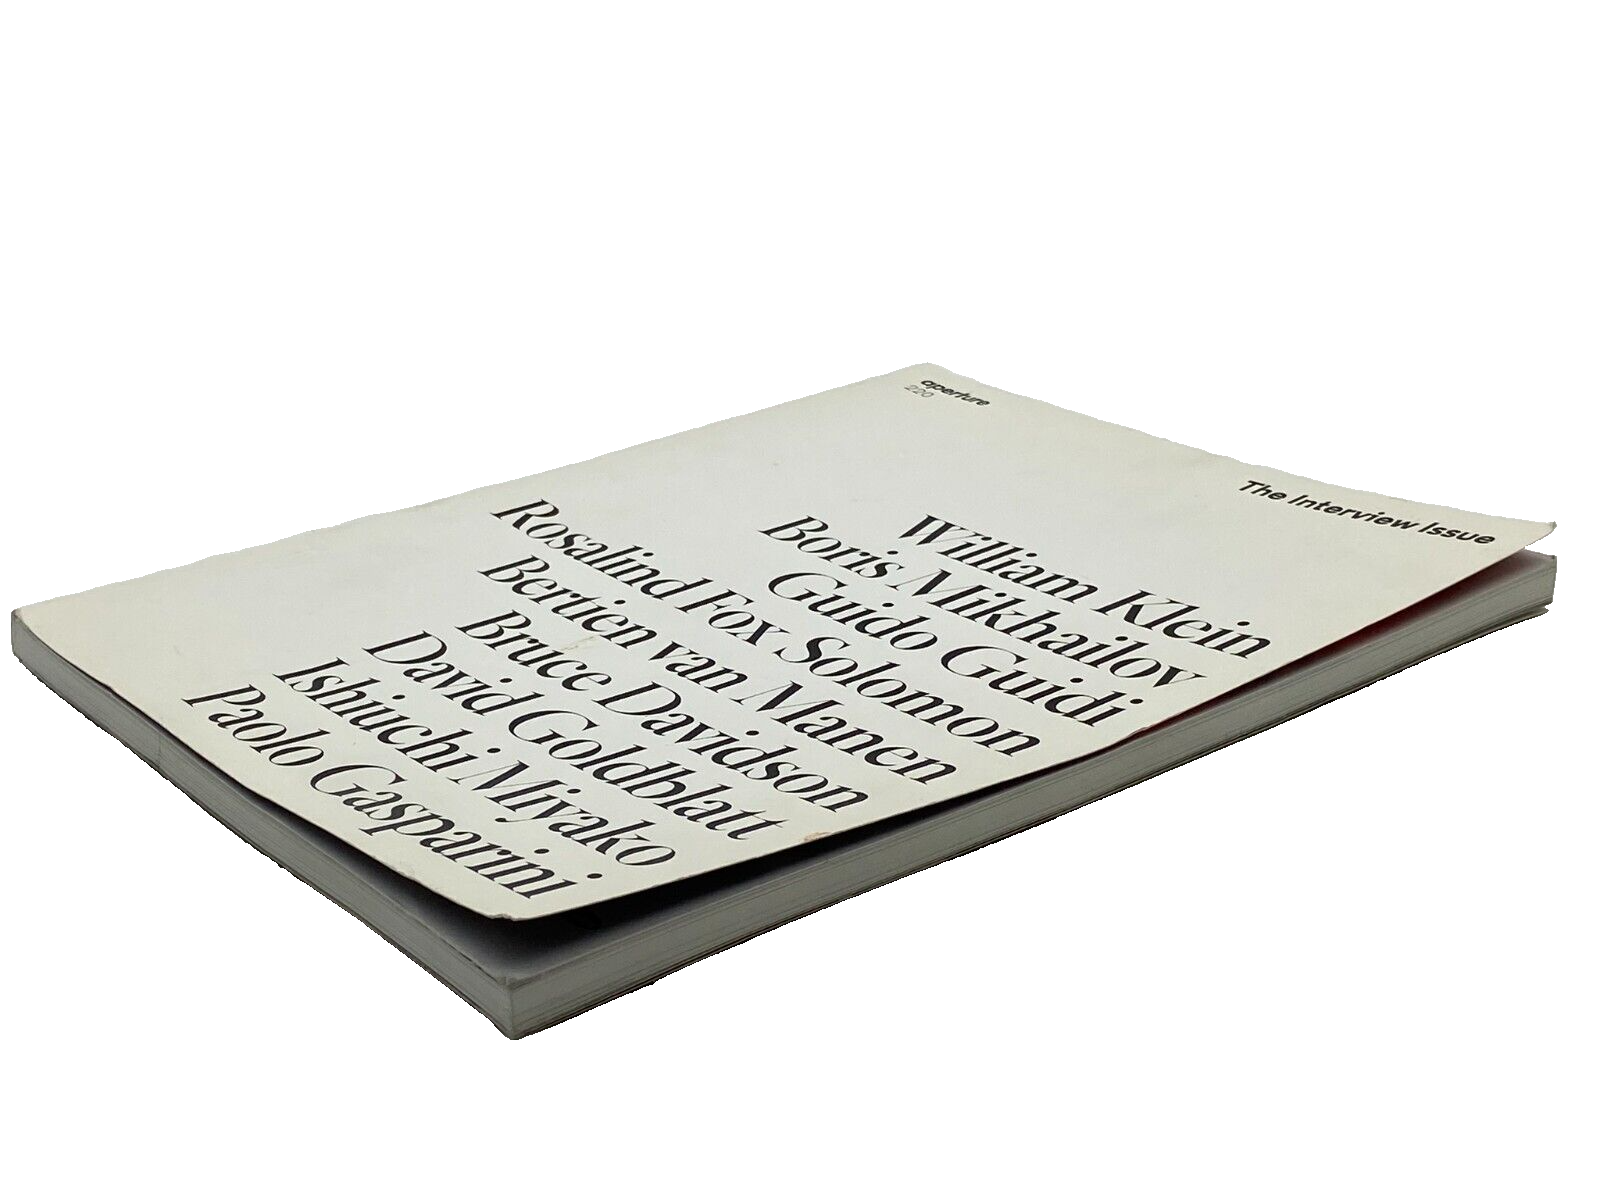 aperture
220
The Interview Issue
William Klein
Boris Mikhailov
Guido Guidi
Rosalind Fox Solomon
Bertien van Manen
Bruce Davidson
David Goldblatt
Ishiuchi Miyako
Paolo Gasparini